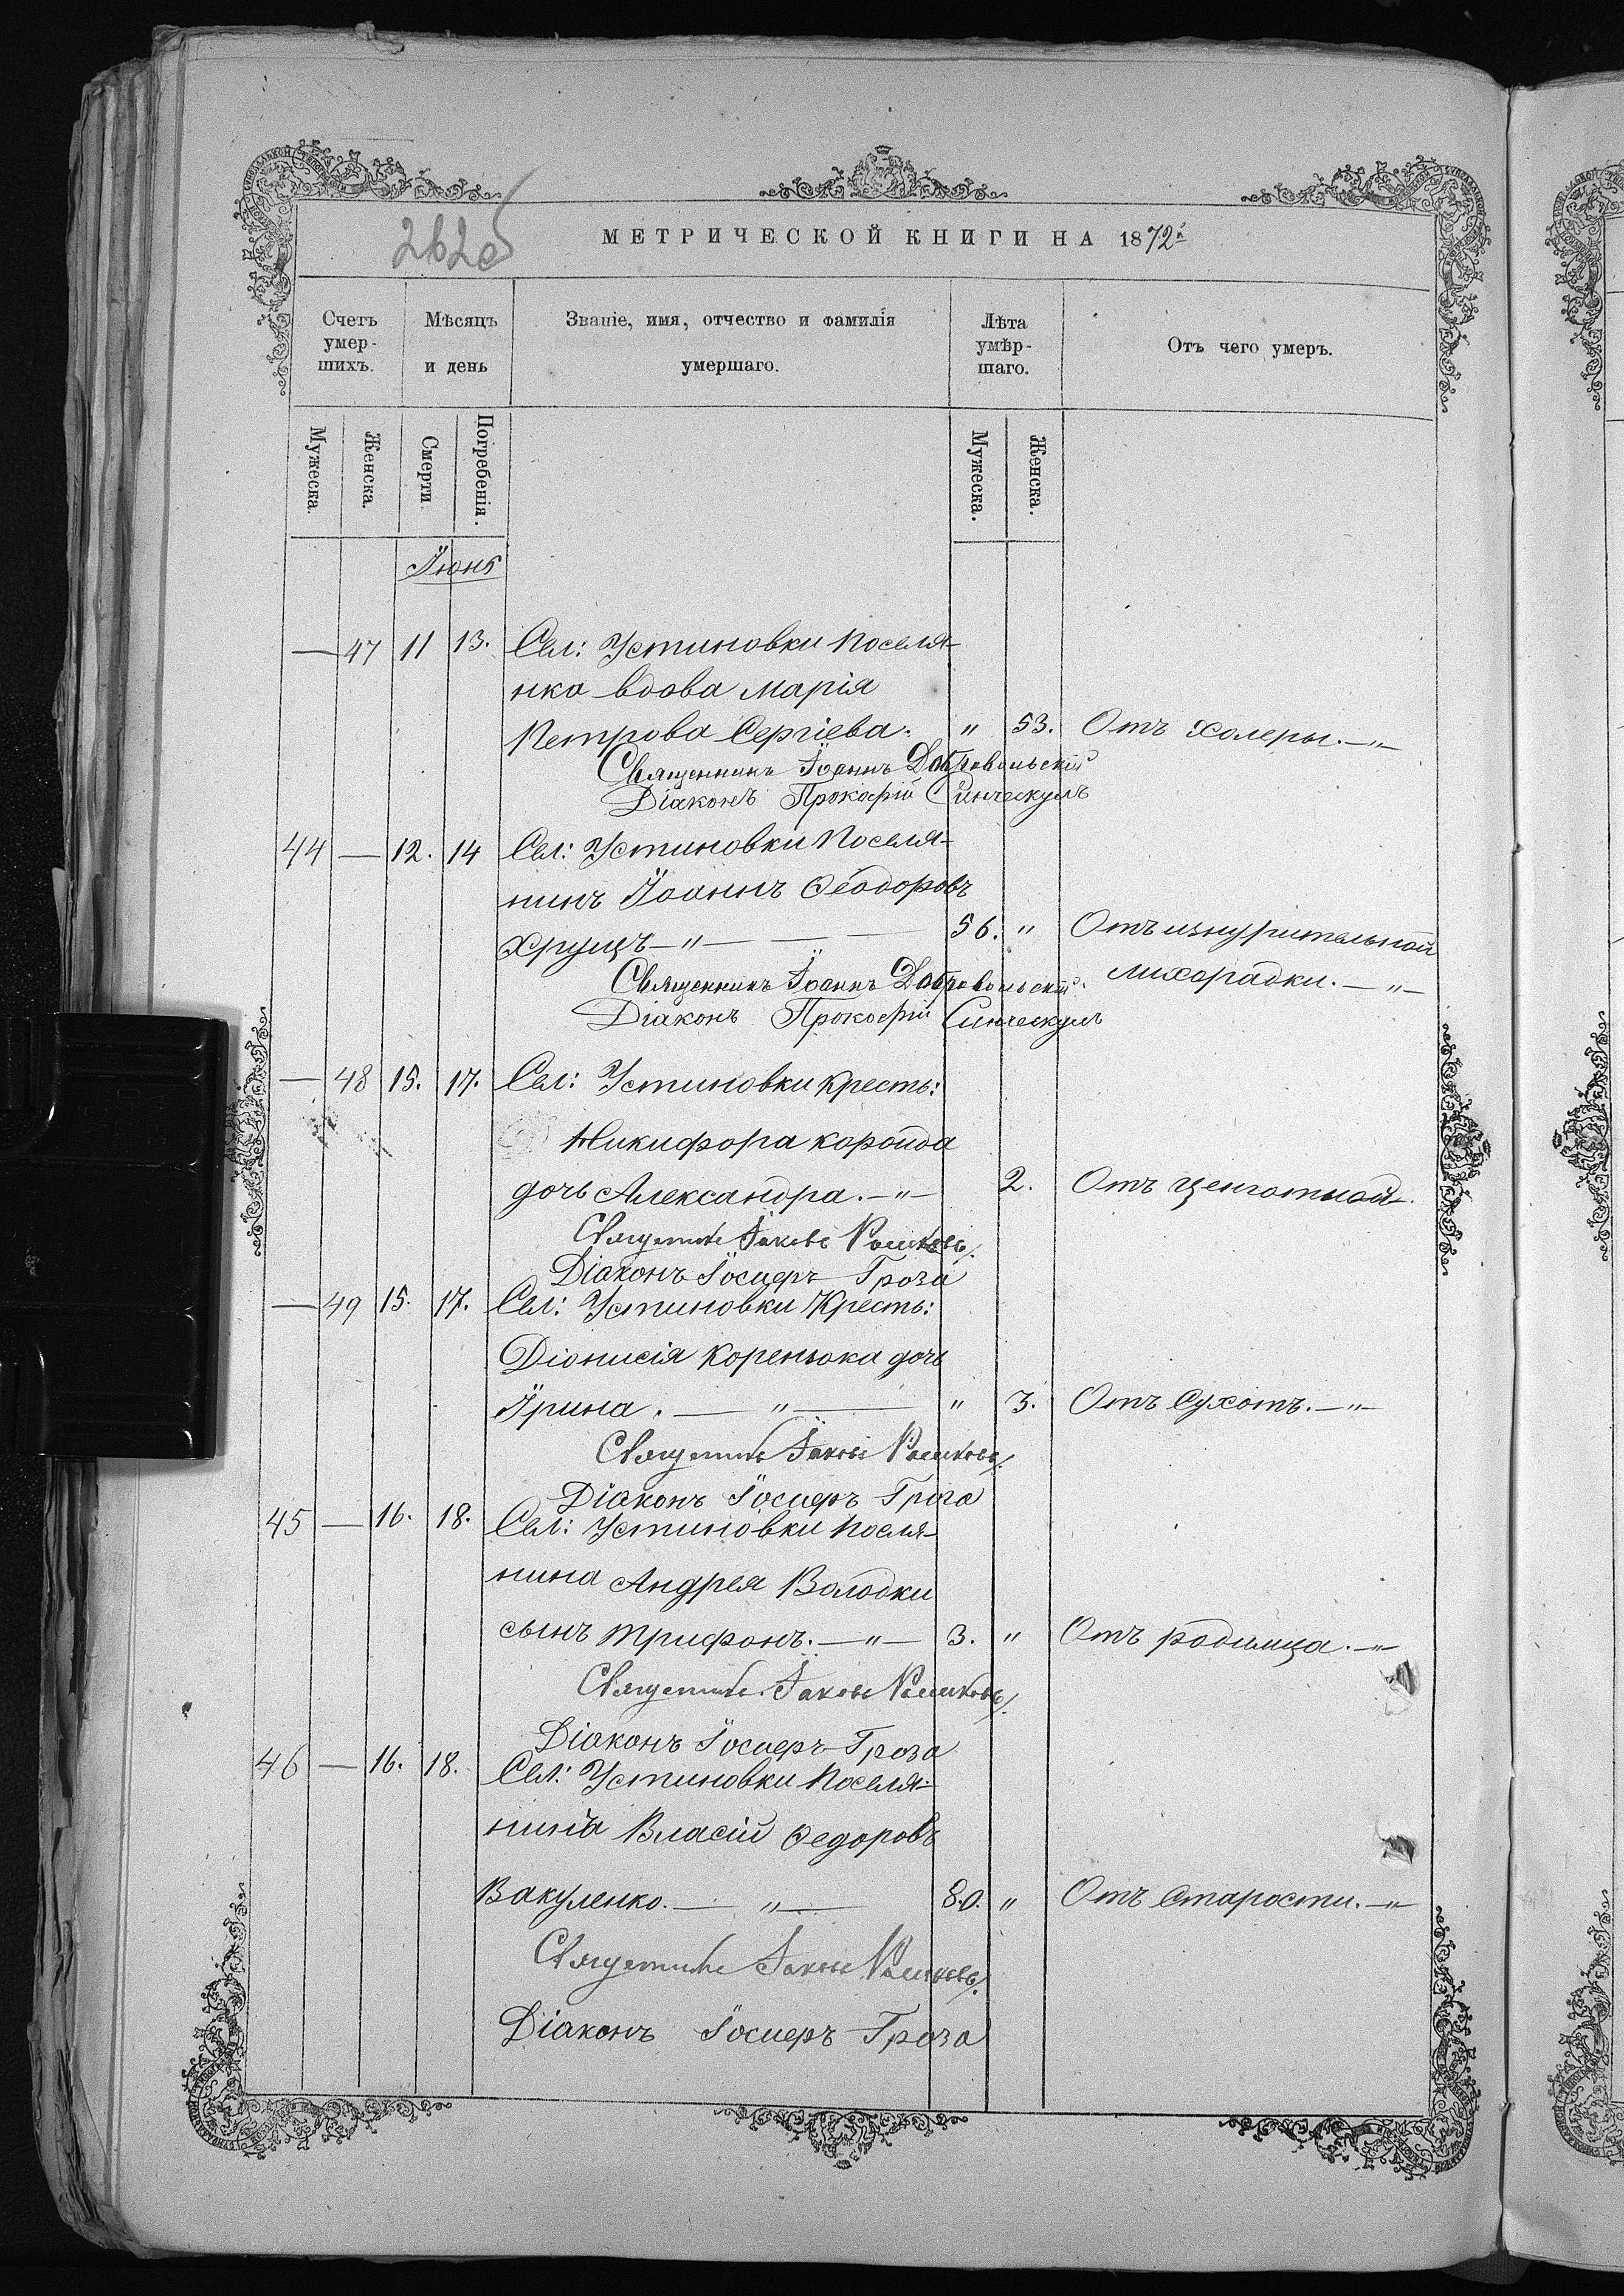 262об
МЕТРИЧЕСКОЙ КНИГИ НА 1872й
Счетъ умер- шихъ.
Мѣсяцъ и день
Званіе, имя, отчество и фамилія умершаго.
Лѣта умѣр- шаго.
Отъ чего умеръ.
Мужеска. Женска. Смерти. Погребенія. Мужеска. Женска.
Іюнь
— 47 11 13. Сел: Устиновки поселя-
нка вдова Марія
Петрова Сергіева. " 53. Отъ холеры. —"—
Священникъ Іоаннъ Добровольскій
Діаконъ Прокофій
44 — 12. 14 Сел: Устиновки Поселя-
нинъ Іоаннъ Ѳеодоровъ
Хрущъ —"— 56. " Отъ изнурительной
лихорадки. —"—
Священникъ Іоаннъ Добровольскій
Діаконъ Прокофій
— 48 15. 17. Сел: Устиновки Кресть:
Никифора Короида
дочь Александра. —"— 2. Отъ цынготной
Священникъ Іаковъ
Діаконъ Іосифъ Гроза
— 49 15. 17. Сел: Устиновки Кресть:
Діонисія Коренюка дочь
Ирина. — " — " 3. Отъ Сухотъ. —"—
Священникъ Іаковъ
Діаконъ Іосифъ Гроза
45 — 16. 18. Сел: Устиновки поселя-
нина Андрея Володки
сынъ Трифонъ. —"— 3. " Отъ родимца. —"—
Священникъ Іаковъ
Діаконъ Іосифъ Гроза
46 — 16. 18. Сел: Устиновки Поселя-
нинъ Власій Ѳедоровъ
Вакуленко. — " — 80. " Отъ Старости. —"—
Священникъ Іаковъ
Діаконъ Іосифъ Гроза